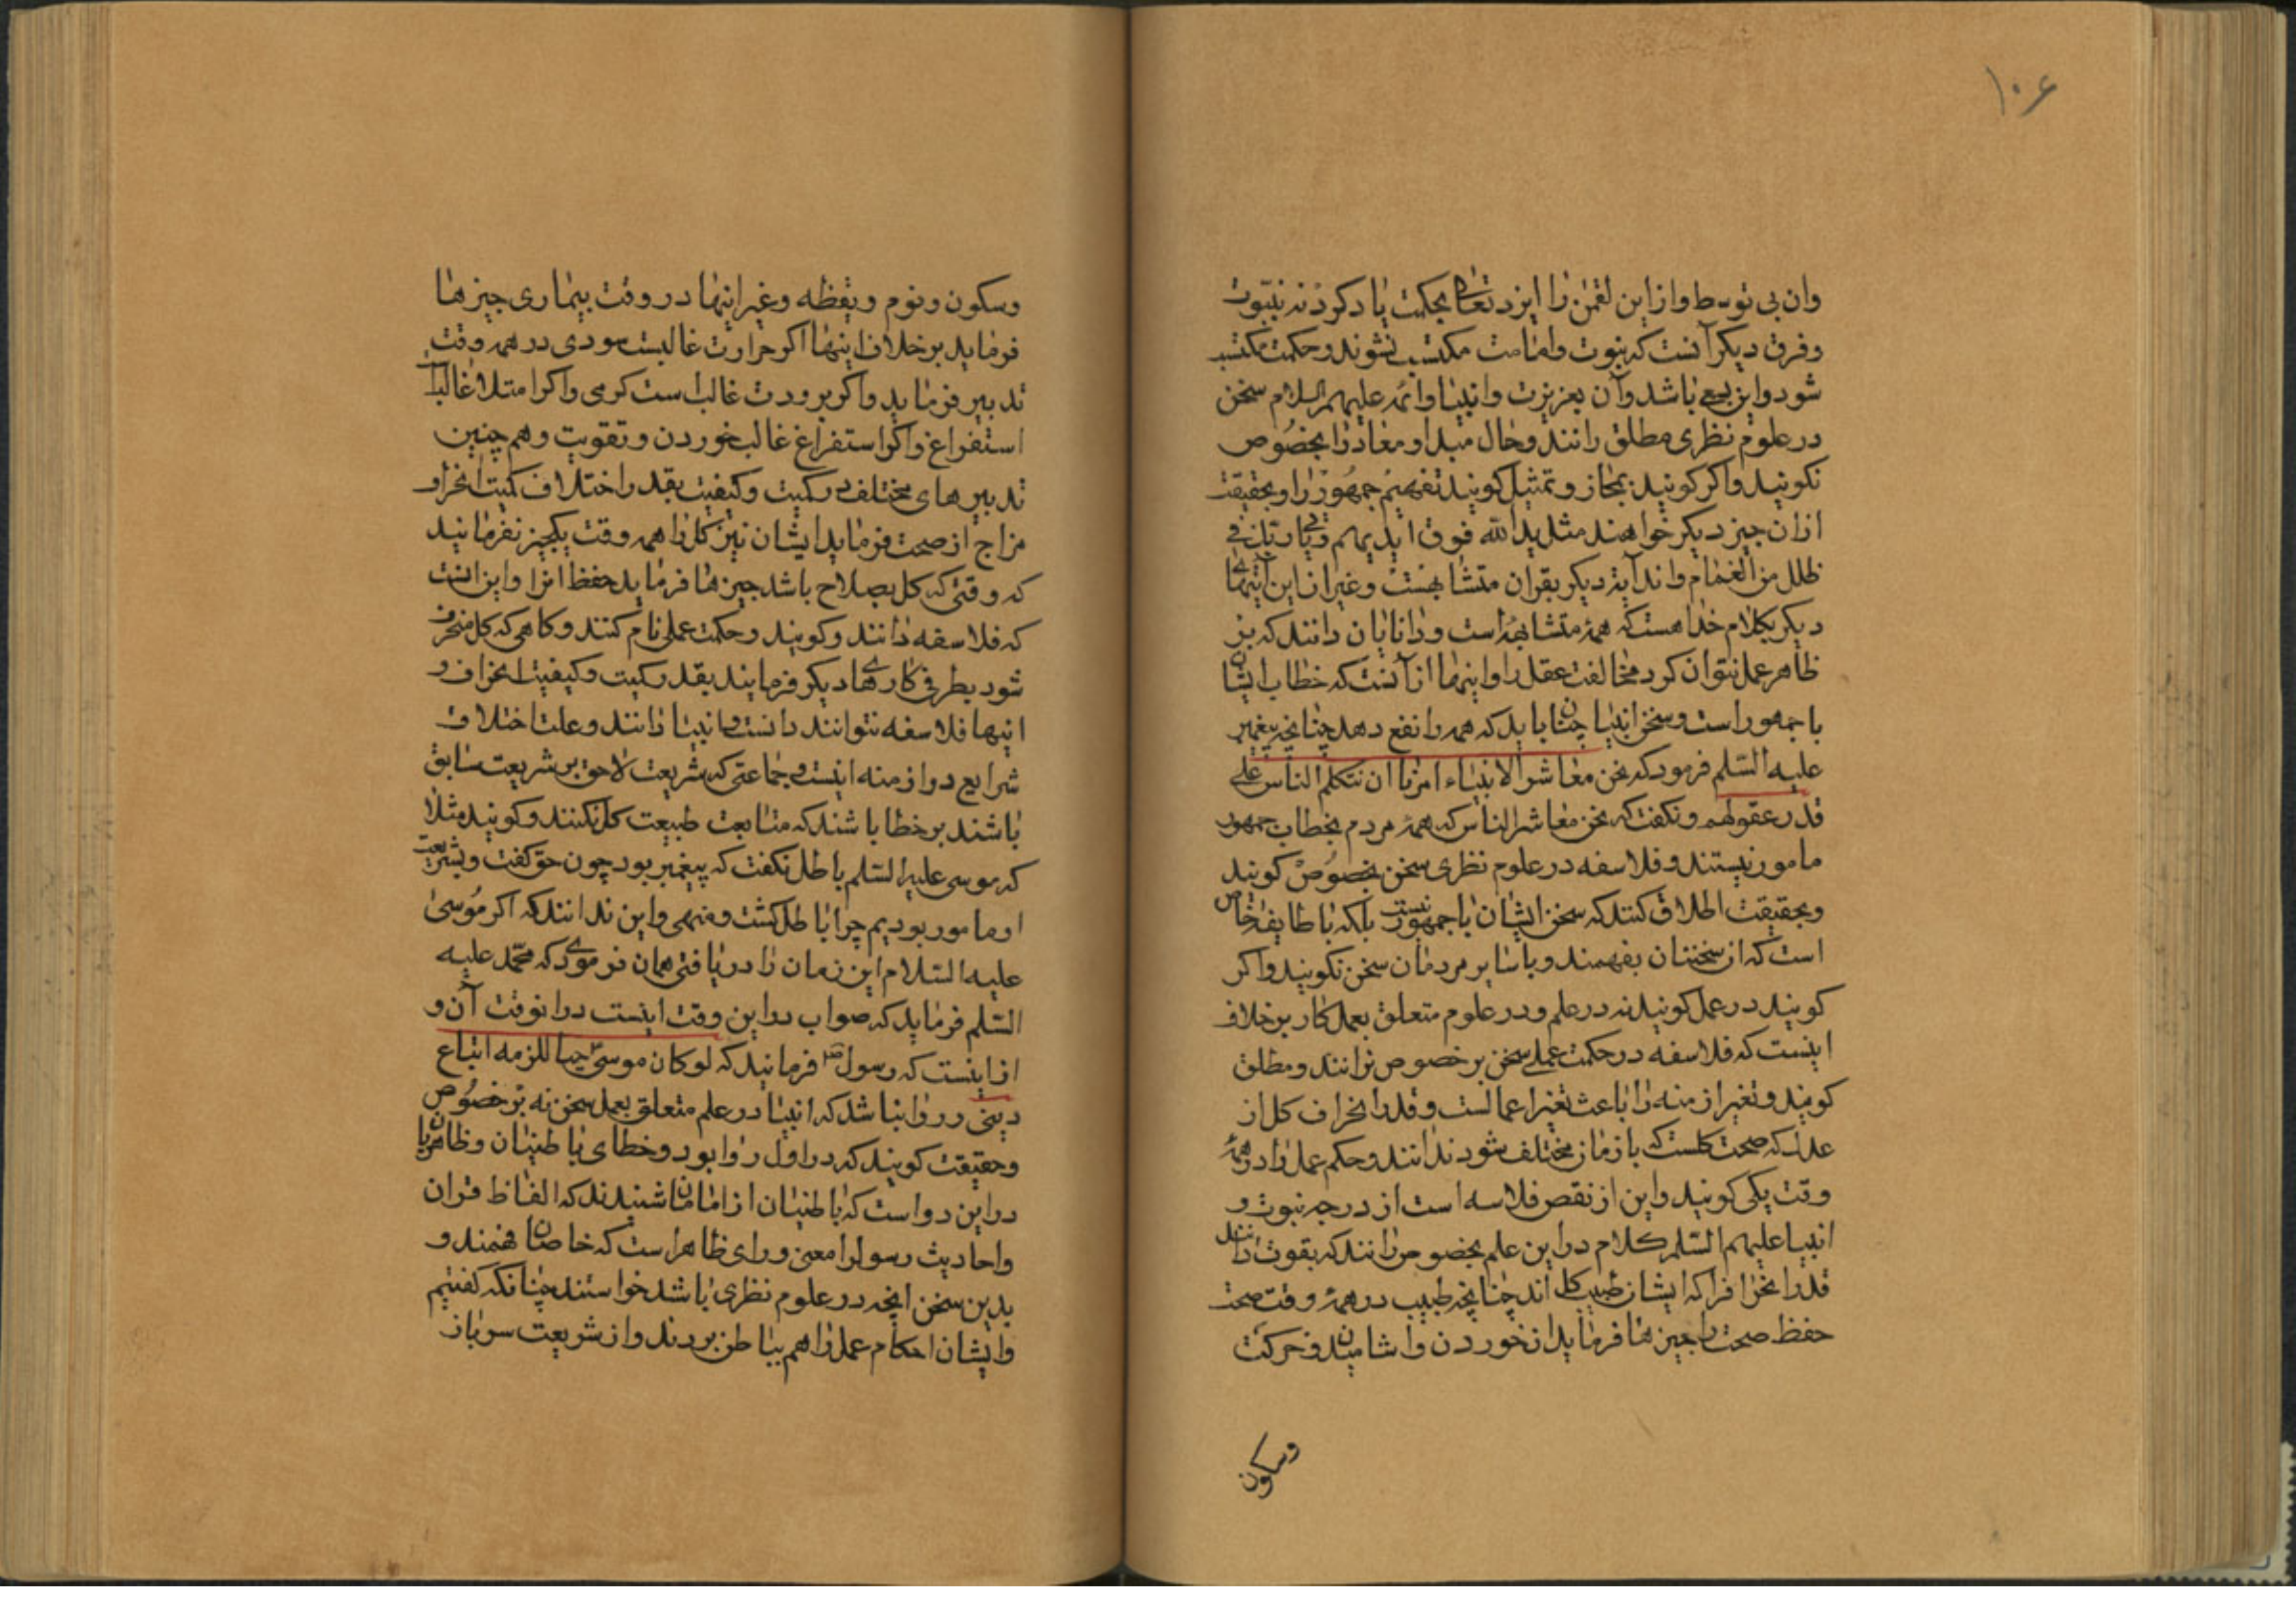 ۱۰۶
وان بی توسط وازاین لقمن را ایزد تعالی بحکمت یاد کرد نه نبوت
وفرق دیکر آنست که نبوت وامامت مکتسب نشوند وحکمت مکتسب
شود واین بسعی باشد وآن بعزیزت وانبیا وائمه علیهم السلام سخن
در علوم نظری مطلق رانند وحال مبدا ومعاد را بخصوص
نکویند واکر کویند بمجاز وتمثیل کویند تفهیم جمهور را وبحقیقت
ازان چیز دیکر خواهند مثل ید الله فوق ایدیهم ویاتیک فی
ظلل من الغمام واند آیه دیکر بقران متشابهست وغیر ازاین آیتهای
دیکر بکلام خدا هست که همه متشابهه است ودانایان دانند که بر
ظاهر عمل نتوان کرد مخالفت عقل را واینها از آنست که خطاب ایشان
با جمهور است وسخن انبیا چنان باید که همه را نفع دهد چنانچه پیغمبر
علیه السلم فرمود که نحن معاشر الانبیاء امرنا ان نتکلم الناس علی
قدر عقولهم ونکفت که نحن معاشر الناس که همه مردم بخطاب جمهور
مامور نیستند وفلاسفه در علوم نظری سخن بخصوص کویند
وبحقیقت اطلاق کنند که سخن ایشان با جمهور نیست بلکه با طایفه خاص
است که از سخنشان بفهمند وبا سایر مردمان سخن نکویند واکر
کویند در عمل کویند نه در علم ودر علوم متعلق بعمل کار برخلاف
اینست که فلاسفه در حکمت عملی سخن برخصوص نرانند ومطلق
کویند وتغیر ازمنه را باعث تغیر اعمالست وقدر انحراف کل از
عدل که صحت کلست که بازمان مختلف شود ندانند وحکم عمل را در همه
وقت یکی کویند واین از نقص فلاسه است از درجه نبوت و
انبیا علیهم السلم کلام دراین علم بخصوص رانند که بقوت دانند
قدر انحراف را که ایشان طبیب کل اند چنانچه طبیب در همه وقت صحت
حفظ صحت را چیزها فرماید از خوردن واشامیدن وحرکت
وسکون
وسکون ونوم ویقظه وغیر اینها در وقت بیماری چیزها
فرماید برخلاف اینها اکر حرارت غالبست سودی در همه وقت
تدبیر فرماید واکر برودت غالب است کرمی واکر امتلا غالب است
استفراغ واکر استفراغ غالب خوردن وتقویت وهم چنین
تدبیرهای مختلف در کمیت وکیفیت بقدر اختلاف کمیت انحراف
مزاج از صحت فرماید ایشان نیز کل را همه وقت یکچیز نفرمایند
که وقتی که کل بصلاح باشد چیزها فرماید حفظ انرا واین انست
که فلاسفه دانند وکویند وحکمت عملی نام کنند وکاهی که کل منحرف
شود بطرفی کارهای دیکر فرمایند بقدر کمیت وکیفیت انحراف و
اینها فلاسفه نتوانند دانست وانبیا دانند وعلت اختلاف
شرایع در ازمنه اینست وجماعتی که شریعت لاحق بر شریعت سابق
باشند برخطا باشند که متابعت طبیعت کل نکنند وکویند مثلا
که موسی علیه السلم باطل نکفت که پیغمبر بود چون حق کفت وبشریعت
او مامور بودیم چرا باطل کشت ومنهی واین ندانند که اکر موسی
علیه السلام این زمان را دریافتی همان فرمودی که محمد علیه
السلم فرماید که صواب دراین وقت اینست درانوقت آن و
ازاینست که رسول ص فرمایند که لوکان موسی حیا للزمه اتباع
دینی وروا نباشد که انبیا در علم متعلق بعمل سخن نه بر خصوص
وحقیقت کویند که در اول روا بود وخطای باطنیان وظاهریان
دراین دو است که باطنیان از امامان ما شنیدند که الفاظ قران
واحادیث رسول را معنی ورای ظاهر است که خاصان فهمند و
بدین سخن انچه در علوم نظری باشد خواستند چنانکه کفتیم
وایشان احکام عمل را هم بباطن بردند واز شریعت سرباز